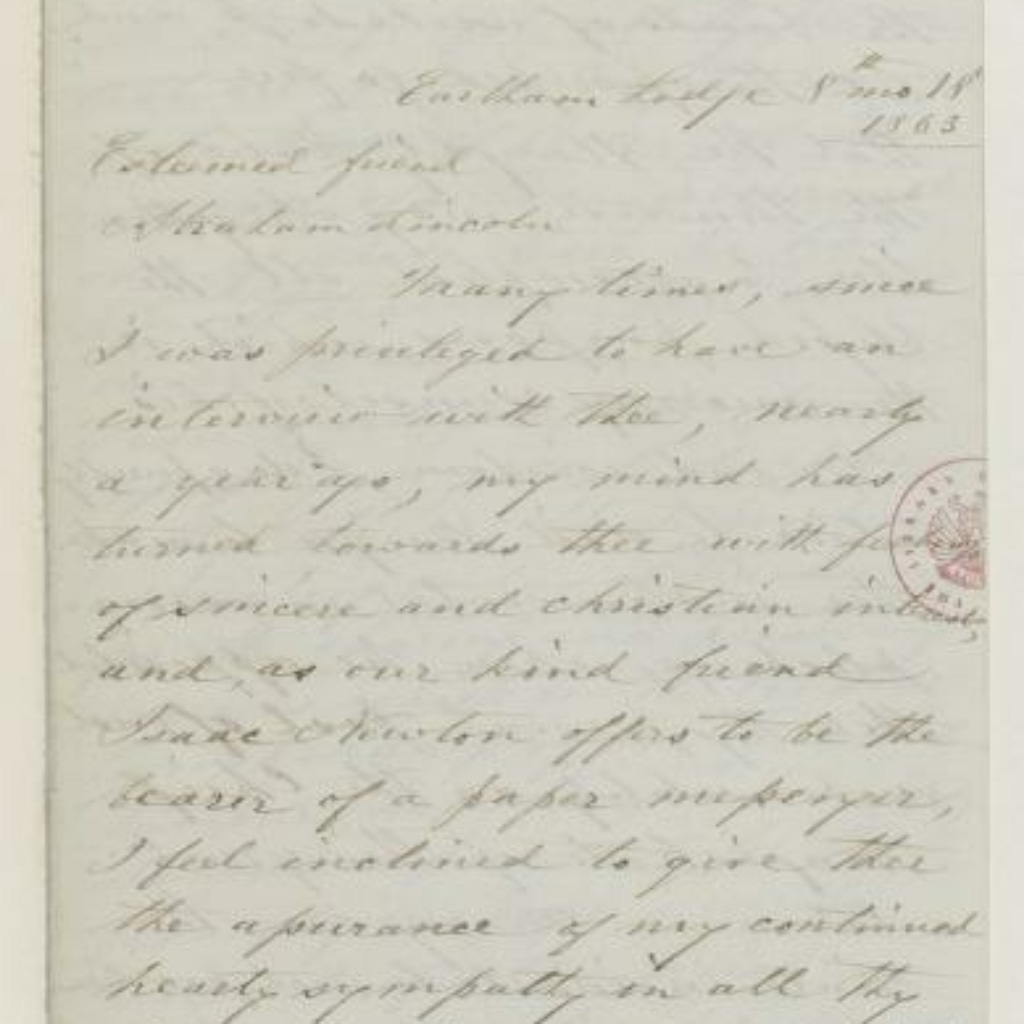 Earlham Lodge 8th mo 18th
1863
Esteemed friend
Abraham Lincoln
Many times, since
I was privileged to have an
interview with thee, nearly
a year ago, my mind has
turned towards thee with
of sincere and christian interest,
and, as our kind friend
Isaac Newton offers to be the
bearer of a paper messenger,
I feel inclined to give thee
the assurance of my continued
hearty sympathy in all thy
LIBRARY